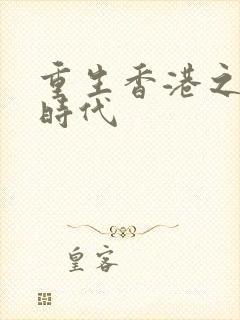 重生香港之
時代
皇客